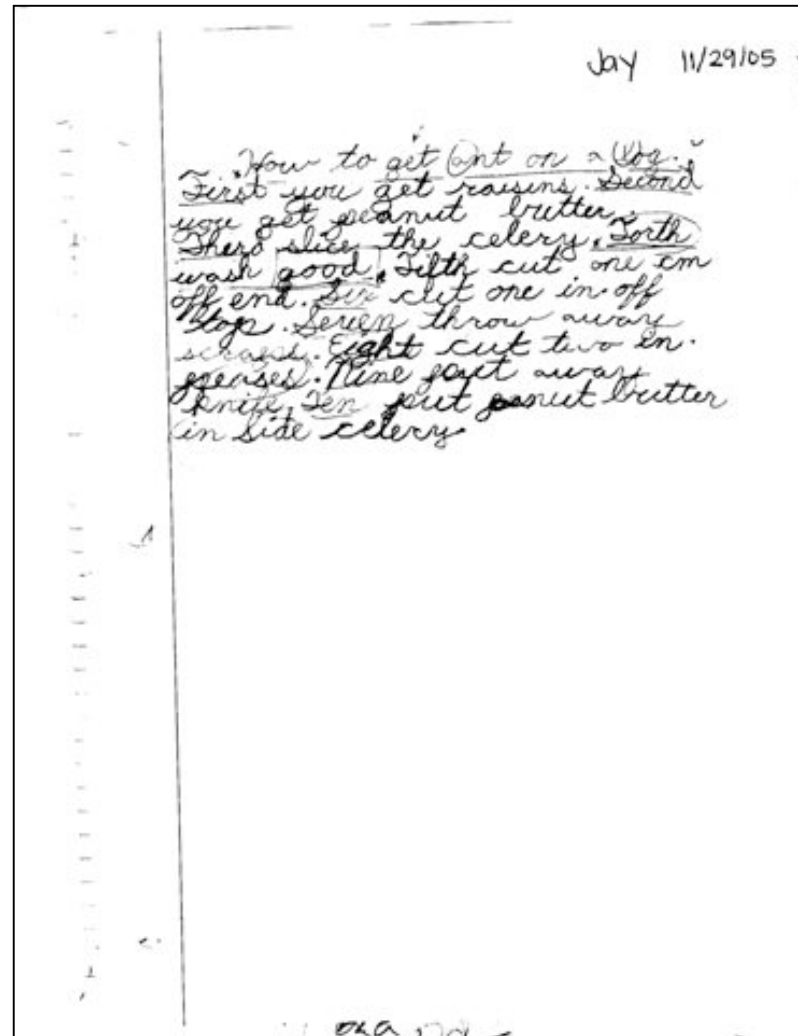 Jay 11/29/05
How to get ant on a log.
First you get raisins. Second
you get peanut butter.
Therd slice the celery. Forth
wash good. Fifth cut one cm
off end. Six cut one in. off
top. Seven throw away
scraps. Eight cut two in.
peases. Nine put away
knife. Ten put penut butter
in side celery.